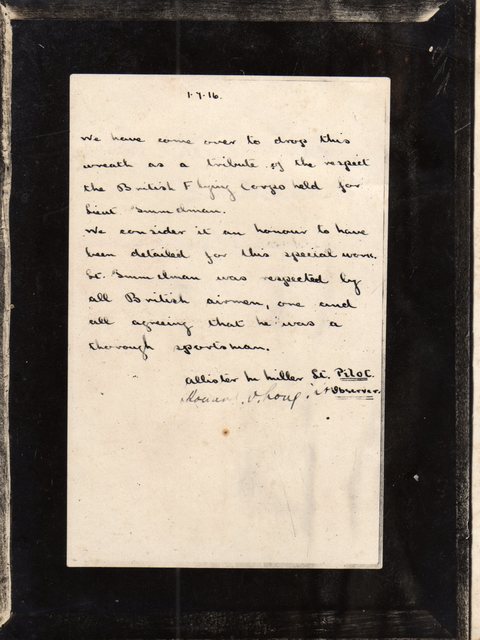 1.7.16.
We have come over to drop this
wreath as a tribute of the respect
the British Flying Corps held for
Lieut. Immelman.
We consider it an honour to have
been detailed for this special work.
Lt. Immelman was respected by
all British airmen, one and
all agreeing that he was a
thorough sportsman.
Allister M Miller Lt. Pilot.
Howard O. Long. Lt Observer.